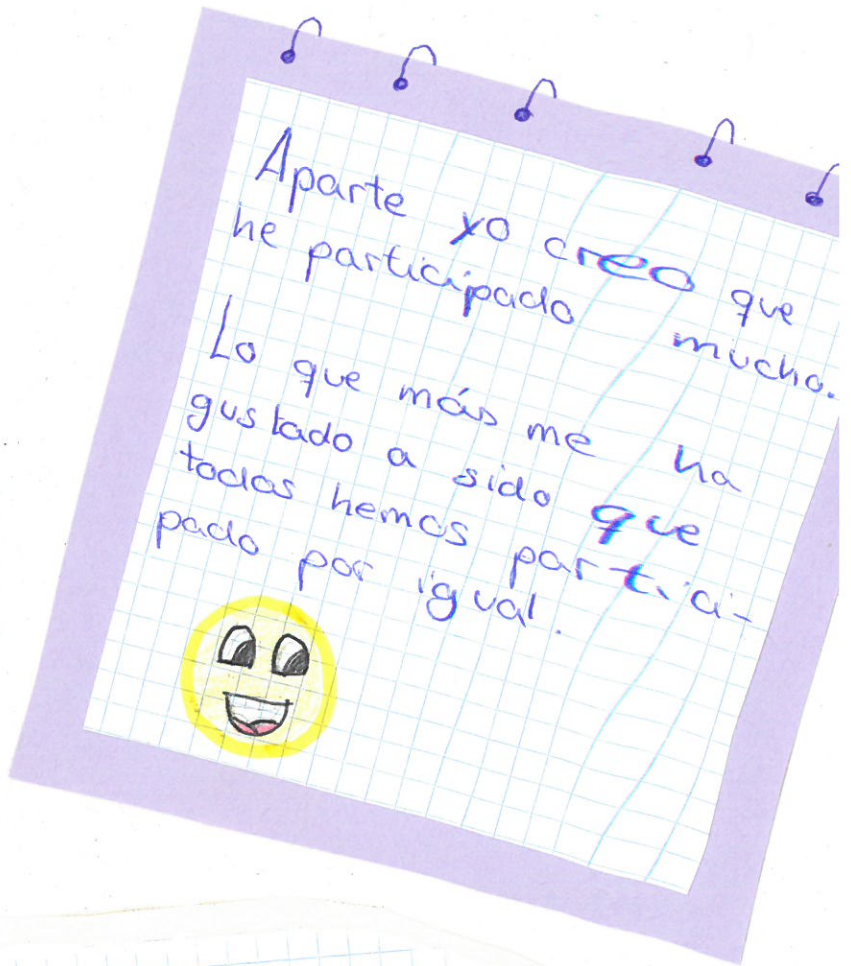 Aparte yo creo que
he participado mucho.
Lo que más me ha
gustado a sido que
todas hemos partici-
pado por igual.